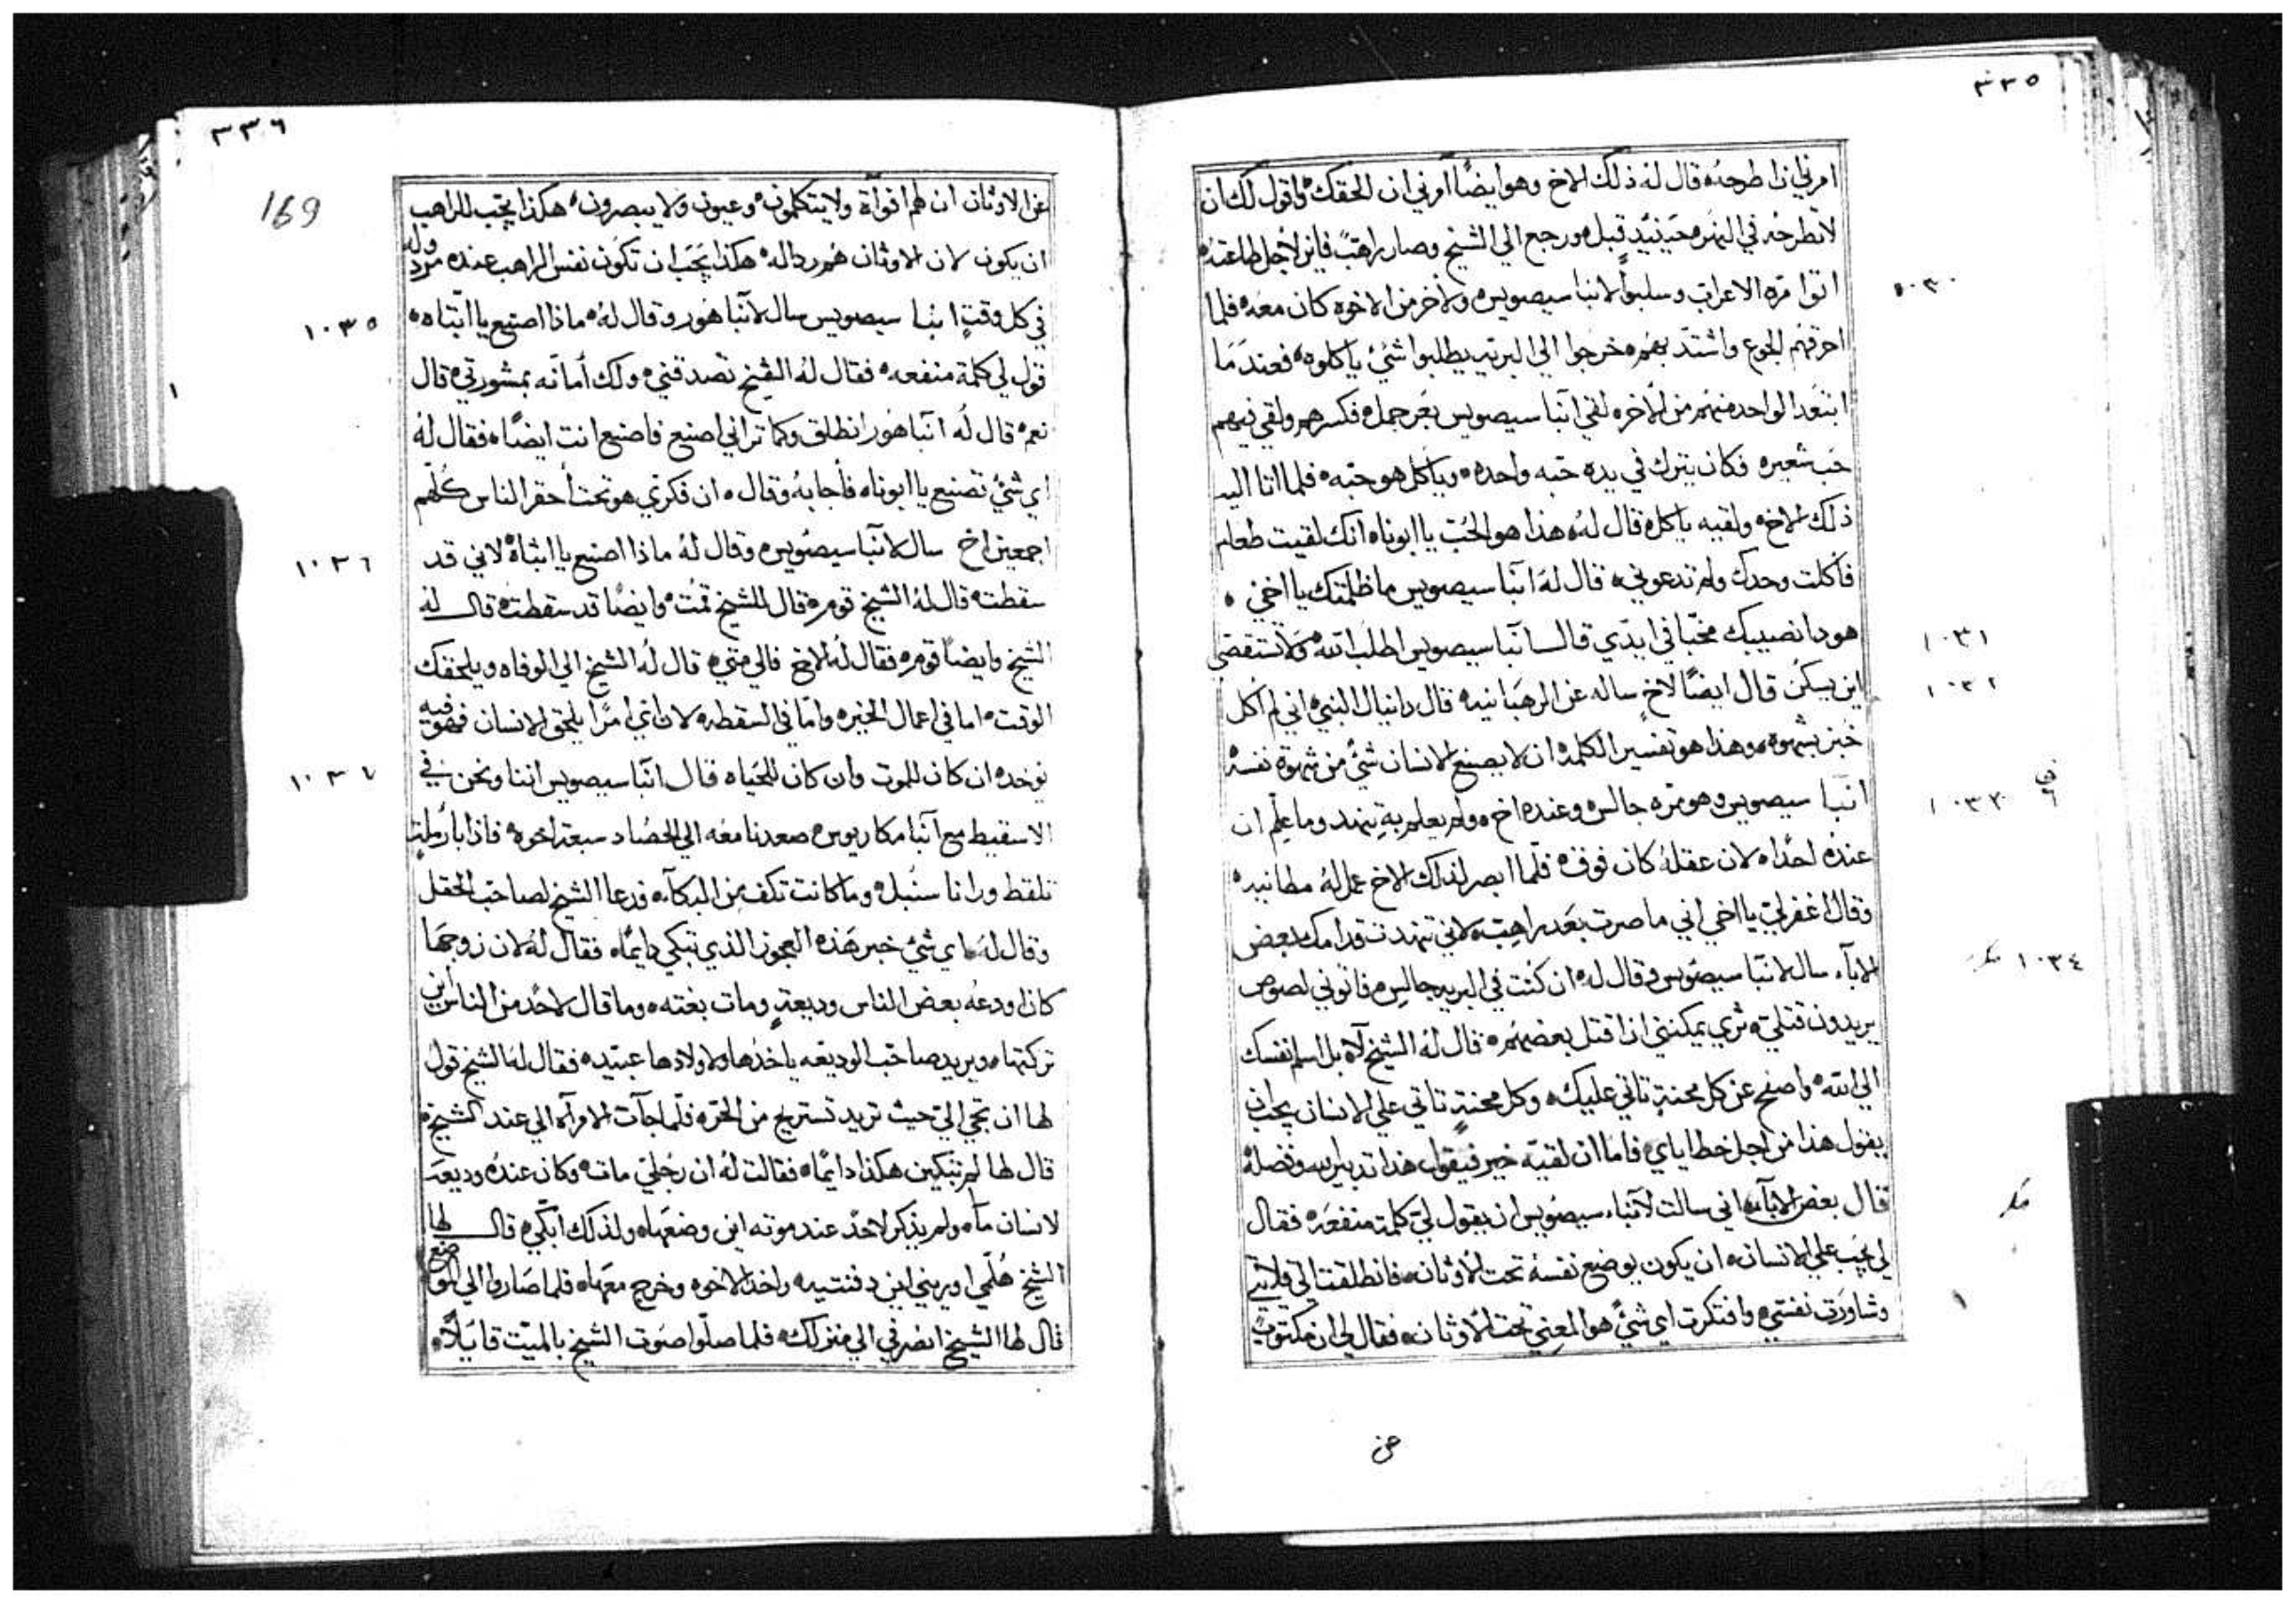 ٣٣٥
امرني ان اطرحته قال له ذلك الاخ وهو ايضًا امرني ان الحقك واقول لك ان
لا تطرحه في النهر حينيذٍ قبله ورجع الي الشيخ وصار راهبًا فايز لاجل طاعته
١٠٣٠
اتوا مره الاعراب وسلبوا لانبا سيصويس ولاخر من الاخوه كان معه فلما
احرقهم الجوع واشتد بهم خرجوا الي البريه يطلبوا شئ ياكلوه فعند ما
ابتعد الواحد منهم من الاخر لقي انبا سيصويس بعر جمل فكسرهم ولقي فيهم
حب شعير فكان يترك في يده حبه واحده وياكل هو حبه فلما اتا اليه
ذلك الاخ ولقيه ياكل قال له هذا هو الحب يا ابوناه انك لقيت طعام
فاكلت وحدك ولم تدعوني قال له انبا سيصويس ما ظلمتك يا اخي
١٠٣١
هوذا نصيبك مخبا في ايدي قال انبا سيصويس اطلب الله ولا تستقصي
١٠٣٢
اين يسكن قال ايضًا لاخ ساله عن الرهبانيه قال دانيال النبي اني لم اكل
خبز بشهوه وهذا هو تفسير الكلمه ان لا يصنع الانسان شئ من شهوة نفسه
١٠٣٣
انبا سيصويس وهو مره جالس وعنده اخ ولم يعلم به تنهد وما علم ان
عنده احدًا لان عقله كان فوق فلما ابصر لذلك الاخ عمل له مطانيه
وقال اغفر لي يا اخي اني ما صرت بعد راهب لاني تنهدت قدامك بعض
١٠٣٤
الابآء سال لانبا سيصويس وقال له ان كنت في البريه جالس فاتوني لصوص
يريدون قتلي تري يمكنني ان اقتل بعضهم قال له الشيخ لآ بل اسلم نفسك
الي الله واصفح عن كل محنةٍ تاتي عليك وكل محنةٍ تاتي علي الانسان يجب ان
يقول هذا من اجل خطاياي فاما ان لقيه خير فيقول هذا تدبير الله وفضله
قال بعض الابآء اني سالت لانبا سيصويس ان يقول لي كلمة منفعه فقال
لي يجب علي الانسان ان يكون يوضع نفسه تحت الاوثان فانطلقت الي قلايتي
وشاورت نفسي وافتكرت اي شئ هو المعني تحت الاوثان فقال لي ان مكتوب
عن
٣٣٦
169
عن الاوثان ان لهم افواهً ولا يتكلمون وعيون ولا يبصرون هكذا يجب للراهب
ان يكون لان الاوثان هم رداله هكذا يجب ان تكون نفس الراهب عنده مردوله
١٠٣٥
في كل وقتٍ انبا سيصويس سال لانبا هور وقال له ماذا اصنع يا ابتاه
قول لي كلمة منفعه فقال له الشيخ تصدقني ولك أمانه بمشورتي قال
نعم قال له انبا هور انطلق وكما تراني اصنع فاصنع انت ايضًا فقال له
اي شئ تصنع يا ابوناه فأجابه وقال ان فكري هو تحت أحقر الناس كلهم
١٠٣٦
اجمعين اخ سال لانبا سيصويس وقال له ماذا اصنع يا ابتاه لاني قد
سقطت قال له الشيخ قوم قال للشيخ قمت وايضًا قد سقطت قال له
الشيخ وايضًا قوم فقال له الاخ فالي متي قال له الشيخ الي الوفاه ويلحقك
الوقت اما في اعمال الخير واما في السقطه لان اي امرًا يلحق الانسان فهو فيه
١٠٣٧
يوخد ان كان للموت وان كان للحياه قال انبا سيصويس اننا ونحن في
الاسقيط مع انبا مكاريوس صعدنا معه الي الحصاد سبعة اخوه فاذا بارملةٍ
تلقط ورانا سنبل وما كانت تكف من البكآء فدعا الشيخ لصاحب الحقل
وقال له اي شئ خبر هذه العجوز الذي تبكي دايمًا فقال له لان زوجها
كان اودعه بعض الناس وديعةٍ ومات بغته وما قال لاحد من الناس اين
تركتها ويريد صاحب الوديعه ياخدها ولاولادها عبيد فقال له الشيخ قول
لها ان تجي الي حيث تريد تستريح من الحر فلما جآت الامرآه الي عند الشيخ
قال لها لم تبكين هكذا دايمًا فقالت له ان رجلي مات وكان عنده وديعه
لانسان مآ ولم يذكر لاحد عند موته اين وضعها ولذلك ابكي قال لها
الشيخ هلمي اوريني اين دفنتيه واخذ الاخوه وخرج معها فلما صاروا الي الموضع
قال لها الشيخ انصرفي الي منزلك فلما صلوا صوت الشيخ بالميت قايلًا